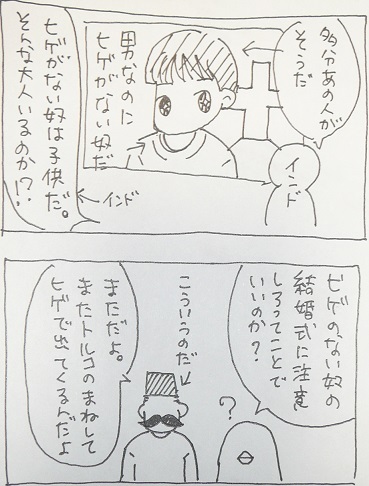 多分あの人が
そうだ
インド
男なのに
ヒゲがない奴だ
インド
ヒゲがない奴は子供だ。
そんな大人いるのか!?
ヒゲのない奴の
結婚式に注意
しろってことで
いいのか?
?
こういうのだ
まだだよ。
またトルコのまねして
ヒゲで出てくるんだよ